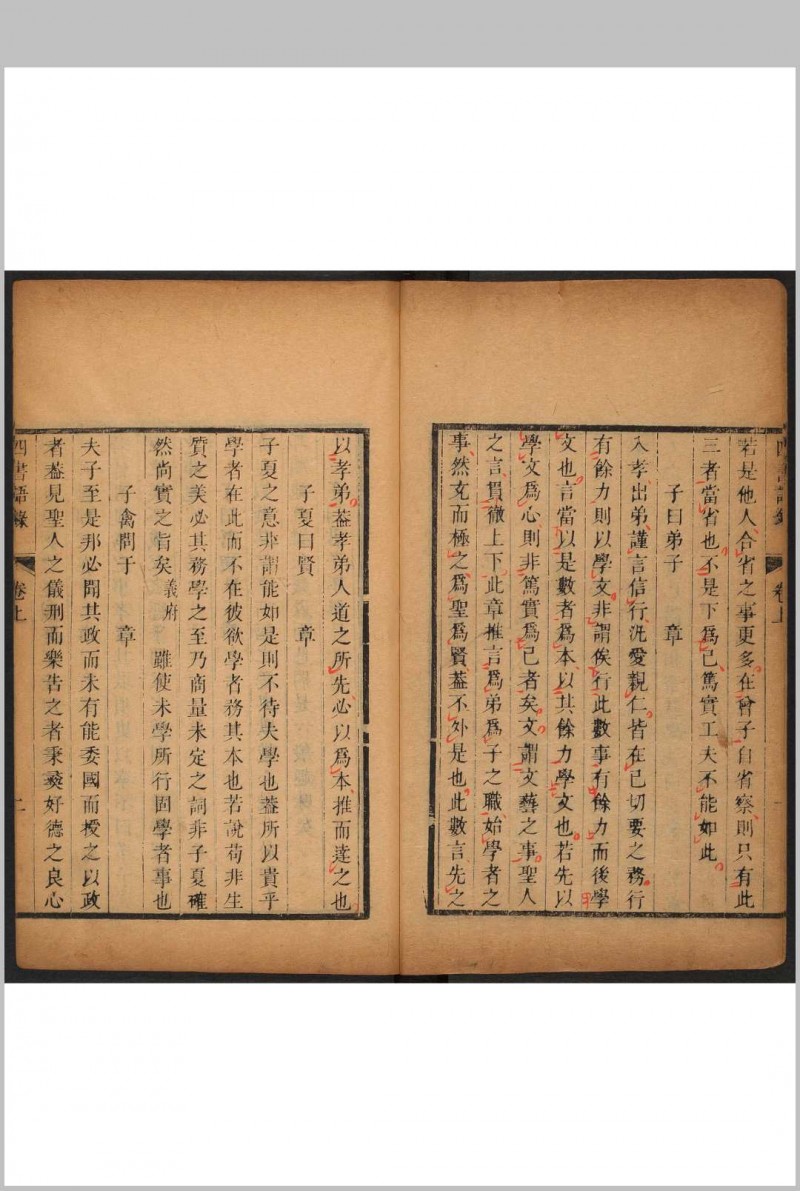 若是他人合省之事更多在曾子自省察則只有此
三者當省也不是下爲己篤實工夫不能如此
子曰弟子　章
入孝出弟謹言信行汎愛親仁皆在己切要之務行
有餘力則以學文非謂俟行此數事有餘力而後學
文也言當以是數者爲本以其餘力學文也若先以
學文爲心則非篤實爲己者矣文謂文藝之事聖人
之言貫徹上下此章推言爲弟爲子之職始學者之
事然充而極之爲聖爲賢葢不外是也此數言先之
以孝弟葢孝弟人道之所先必以爲本推而達之也
子夏曰賢　章
子夏之意非謂能如是則不待夫學也葢所以貴乎
學者在此而不在彼欲學者務其本也若說苟非生
質之美必其務學之至乃商量未定之詞非子夏確
然尚實之旨矣義府　雖使未學所行固學者事也
子禽問于　章
夫子至是邦必聞其政而未有能委國而授之以政
者葢見聖人之儀刑而樂告之者秉彝好德之良心
四書語錄　卷上　二